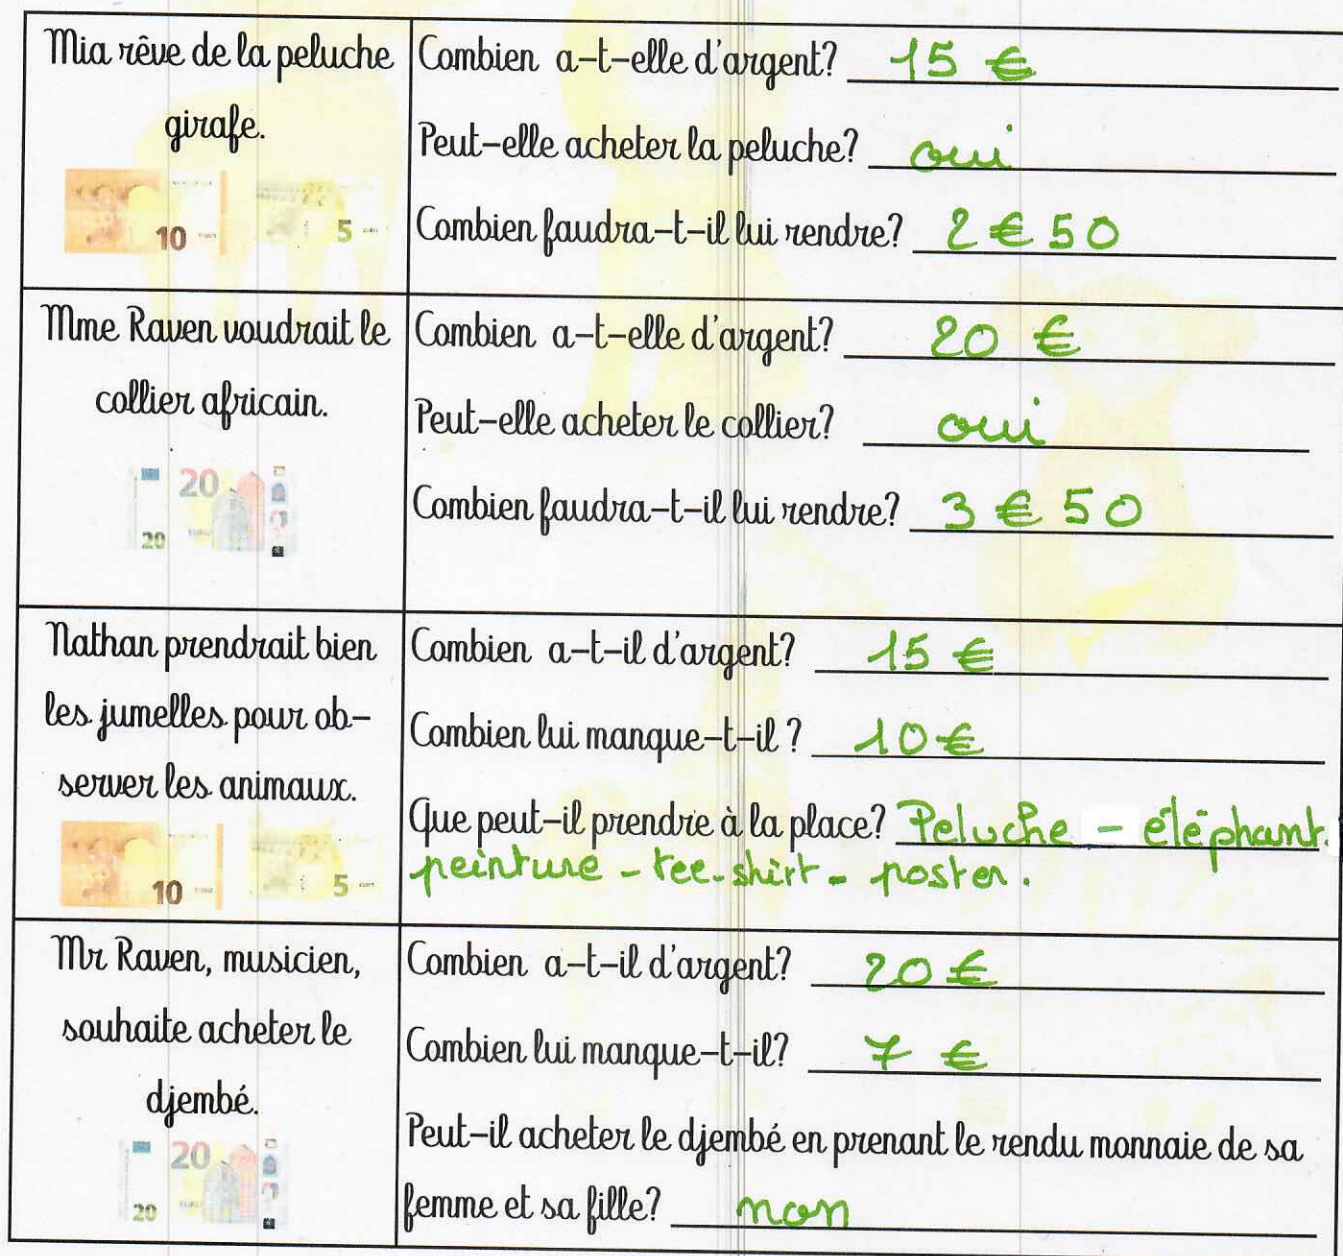 Mia rêve de la peluche
girafe.
10 5
Combien a-t-elle d'argent? 15 €
Peut-elle acheter la peluche? oui
Combien faudra-t-il lui rendre? 2 € 50
Mme Raven voudrait le
collier africain.
20
20
Combien a-t-elle d'argent? 20 €
Peut-elle acheter le collier? oui
Combien faudra-t-il lui rendre? 3 € 50
Nathan prendrait bien
les jumelles pour ob-
server les animaux.
10 5
Combien a-t-il d'argent? 15 €
Combien lui manque-t-il ? 10 €
Que peut-il prendre à la place? Peluche - éléphant.
peinture - tee-shirt - poster.
Mr Raven, musicien,
souhaite acheter le
djembé.
20
20
Combien a-t-il d'argent? 20 €
Combien lui manque-t-il? 7 €
Peut-il acheter le djembé en prenant le rendu monnaie de sa
femme et sa fille? non